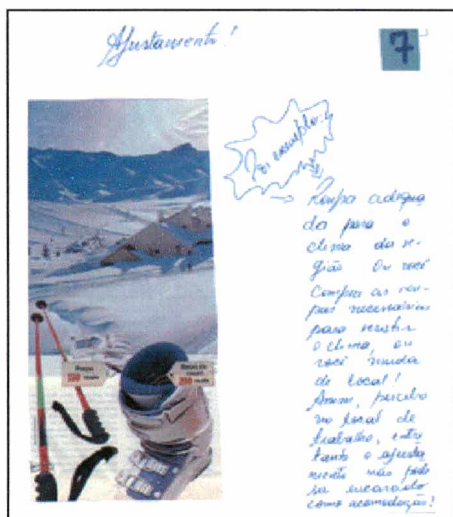 Ajustamento!
7
Por exemplo:
Roupa adequa
da para o
clima da re-
gião Ou você
Compra as rou-
pas necessárias
para resistir
o clima, ou
você muda
de local!
Assim, percebo
no local de
trabalho, entre
tanto o ajusta
mento não pode
ser encarado
como acomodação!